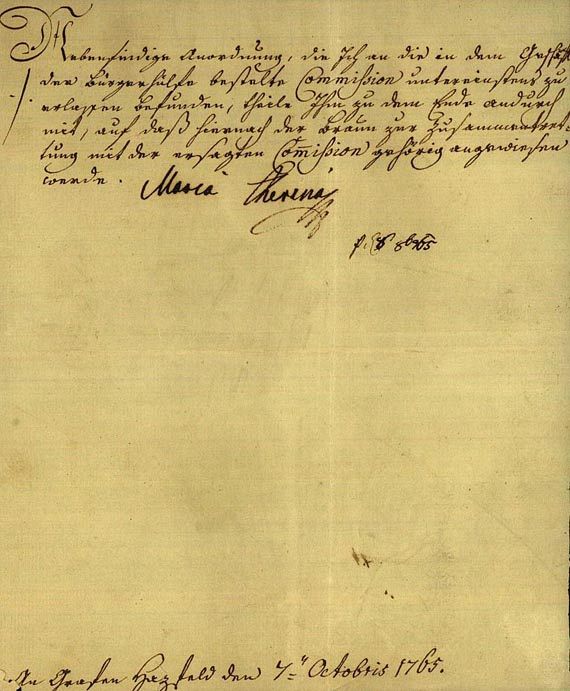 Nebenfindige Anordnung, die Ich an die in dem Geschäft
der Bürgerhülfe bestelte Commission untereinstens zu
erlassen befunden, theile Ihm zu dem Ende andurch
mit, auf daß hiernach der Braun zur Zusammentret-
tung mit der ersagten Comission gehörig angewiesen
werde.
Maria Theresia
An Grafen Hazfeld den 7. Octobris 1765.